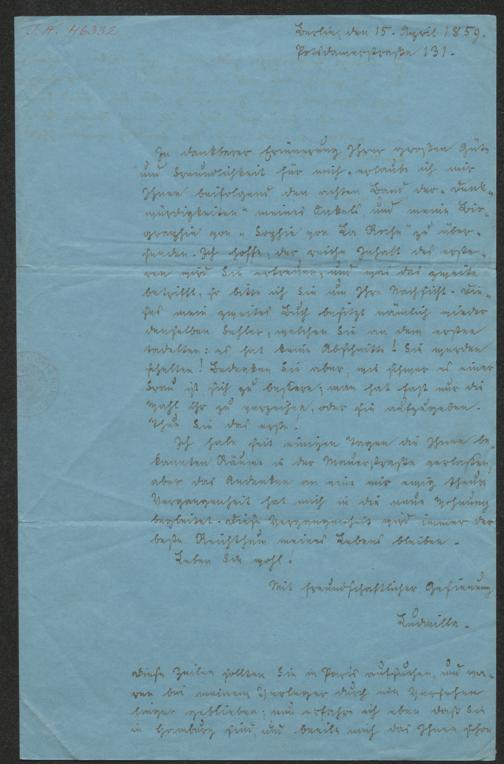 I. N. 46332
Berlin, den 15. April 1859.
Potsdamerstraße 131.
In dankbarer Erinnerung Ihrer großen Güte
und Freundlichkeit für mich, erlaube ich mir
Ihnen beifolgend den achten Band der „Denk-
würdigkeiten“ meines Onkels und meine Bio-
graphie von „Sophie von La Roche“ zu über-
senden. Ich hoffe, der reiche Inhalt des erste-
ren wird Sie erfreuen, und was das zweite
betrifft, so bitte ich Sie um Ihre Nachsicht. Die-
ses mein zweites Buch besitzt nämlich wieder
denselben Fehler, welchen Sie an dem ersten
tadelten: es hat keine Abschnitte! Sie werden
schelten! Bedenken Sie aber, wie schwer es einer
Frau ist sich zu bessern; man hat fast nur die
Wahl ihr zu verzeihen, oder sie aufzugeben.
Thun Sie das erste!
Ich habe seit einigen Tagen die Ihnen be-
kannten Räume in der Mauerstraße verlassen,
aber das Andenken an eine mir ewig theure
Vergangenheit hat mich in die neue Wohnung
begleitet. Diese Vergangenheit wird immer der
beste Reichthum meines Lebens bleiben.
Leben Sie wohl.
Mit freundschaftlicher Gesinnung
Ludmilla.
Diese Zeilen sollten Sie in Paris aufsuchen, und wa-
ren bei meinem Verleger durch ein Versehen
liegen geblieben; nun erfahre ich eben daß Sie
in Hamburg sind, und beeile mich das Ihnen schon